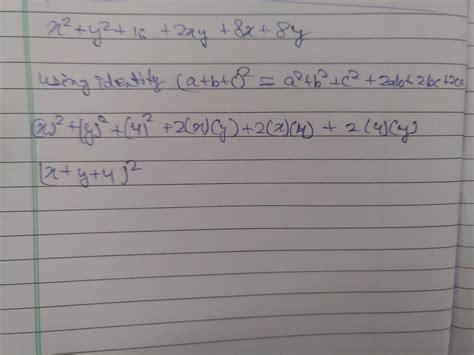 x²+y²+16 +2xy +8x+8y
using identity (a+b+c)² = a²+b²+c² +2ab+2bc+2ca
(x)²+(y)²+(4)² +2(x)(y)+2(x)(4) + 2(4)(y)
(x+y+4)²